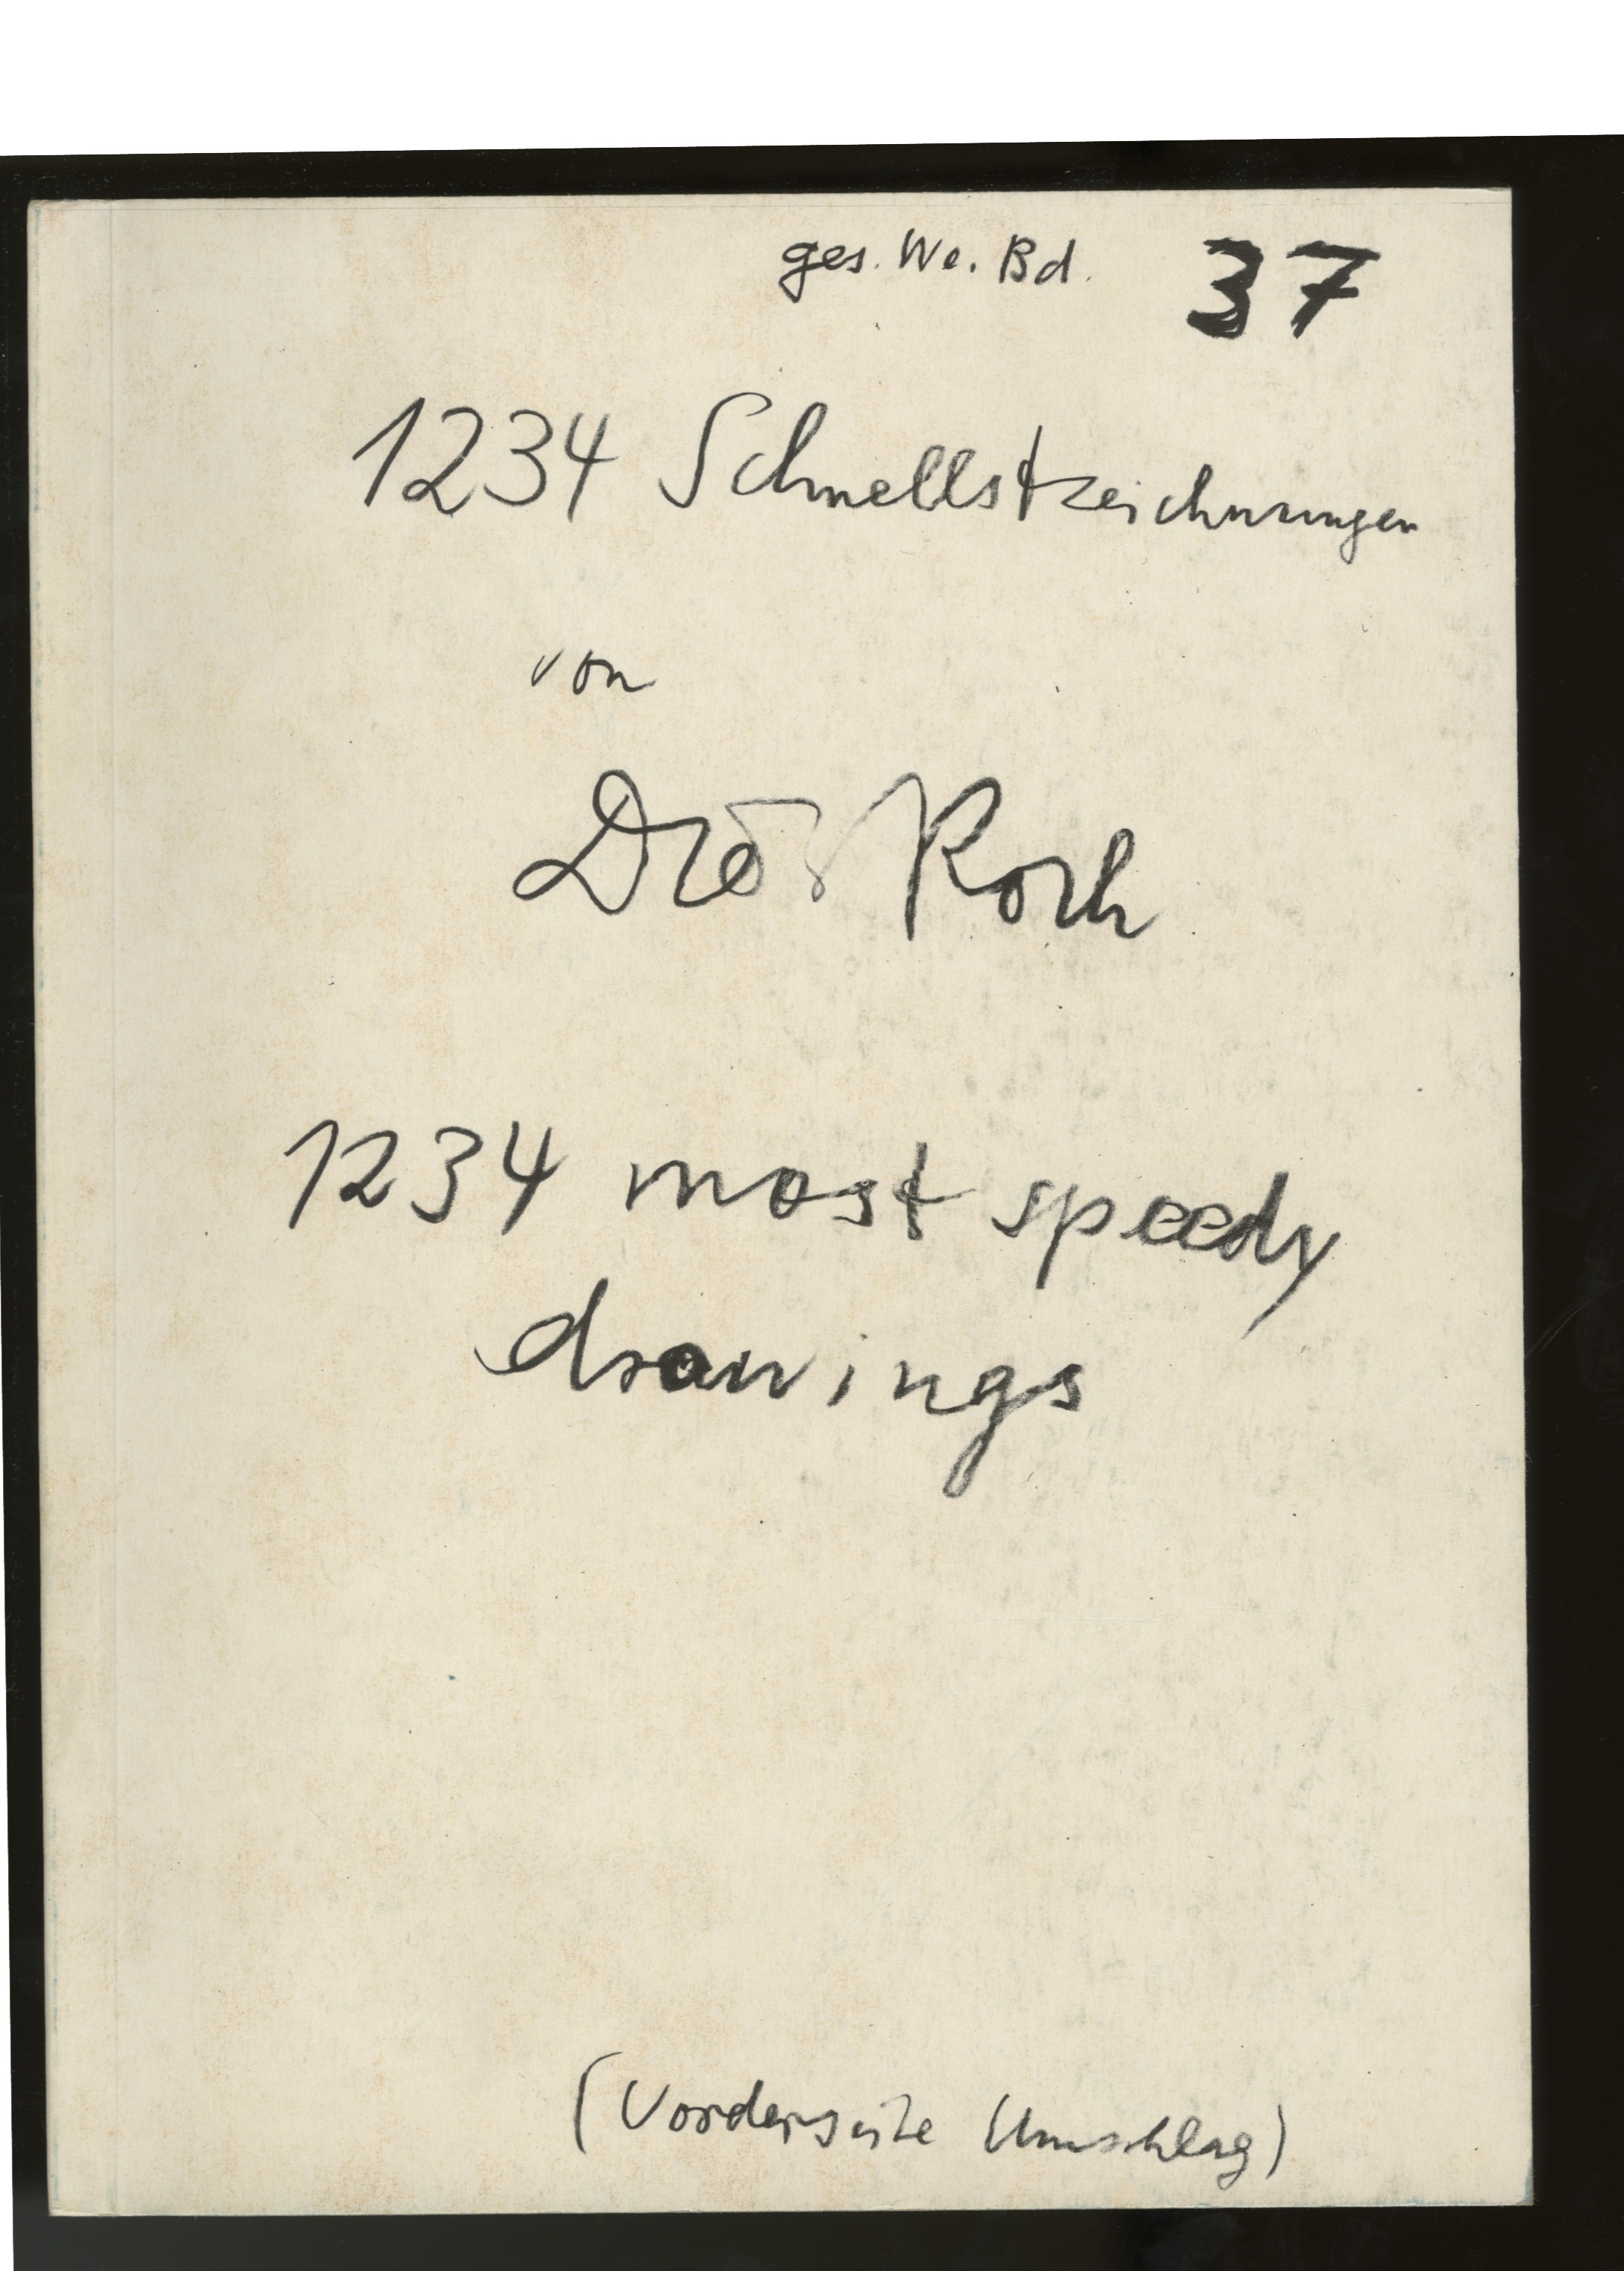 ges. We. Bd. 37
1234 Schnellstzeichnungen
von
Roth
1234 most speedy
drawings
(Vorderseite Umschlag)